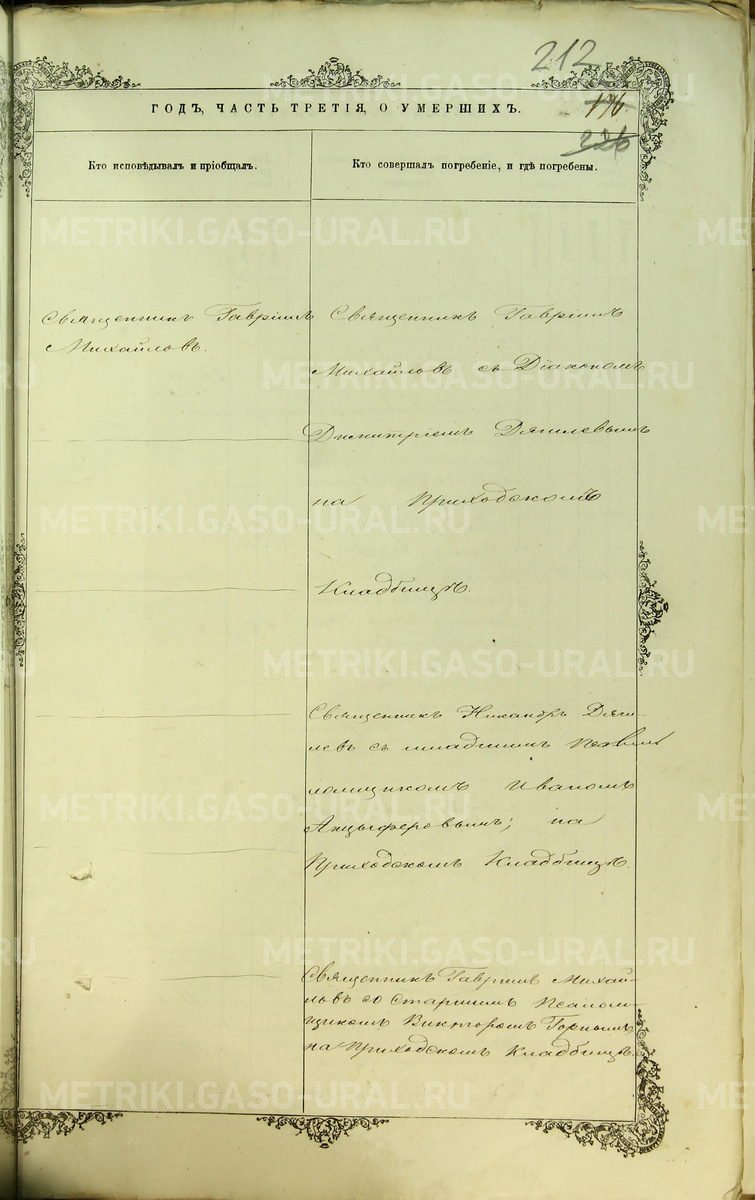 212
176
226
ГОДЪ, ЧАСТЬ ТРЕТІЯ, О УМЕРШИХЪ.
Кто исповѣдывалъ и пріобщалъ.
Кто совершалъ погребеніе, и гдѣ погребены.
Священникъ Гавріилъ
Михайловъ.
Священникъ Гавріилъ
Михайловъ съ Діакономъ
Димитріемъ Дягилевымъ
на Приходскомъ
Кладбищѣ.
Священникъ Никандръ Дяги-
левъ съ младшимъ
ломщикомъ Иваномъ
Анцыферовымъ; на
Приходскомъ Кладбищѣ.
Священникъ Гавріилъ Михай-
ловъ со Старшимъ Псалом-
щикомъ Викторомъ Горнымъ
на Приходскомъ Кладбищѣ.
METRIKI.GASO-URAL.RU